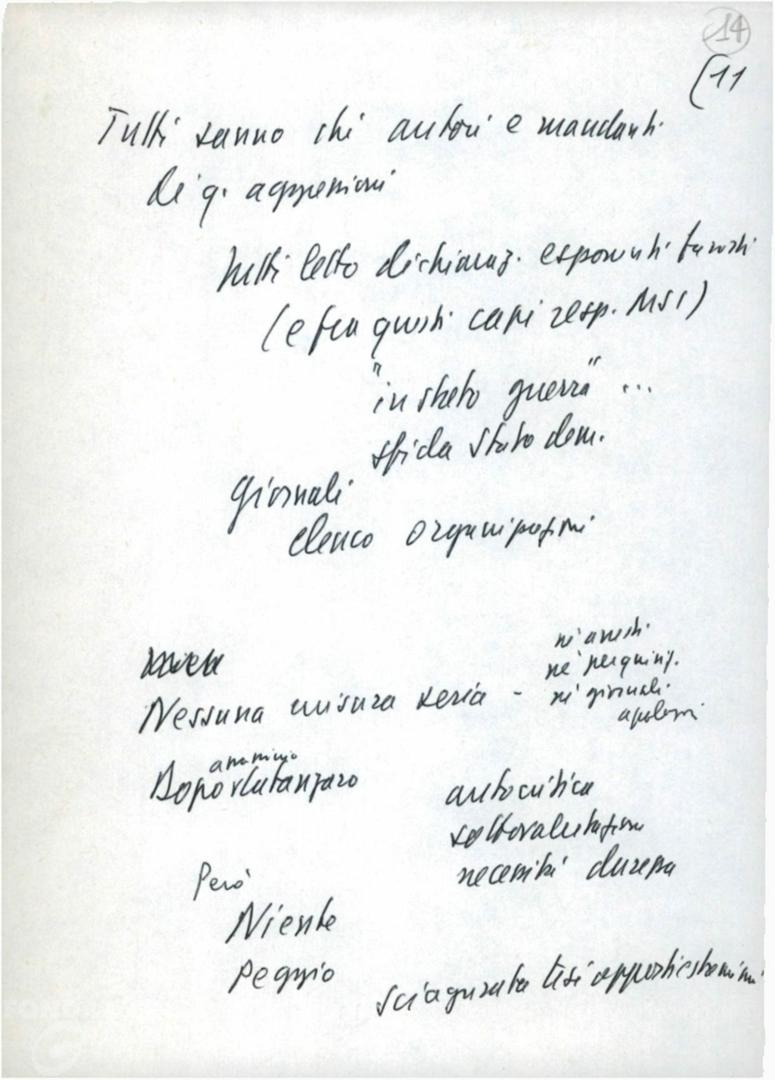 14
(11
Tutti sanno chi autori e mandanti
di q. aggressioni
Tutti letto dichiaraz. esponenti fascisti
(e fra questi capi resp. MSI)
"in stato guerra" ...
sfida Stato dem.
Giornali
elenco organizzazioni
né arresti
né perquisiz.
Nessuna misura seria - né giornali
apologi
ammisso
Dopo Catanzaro
autocritica
sottovalutazione
necessità durezza
Però
Niente
Peggio
sciagurata tesi opposti estremismi